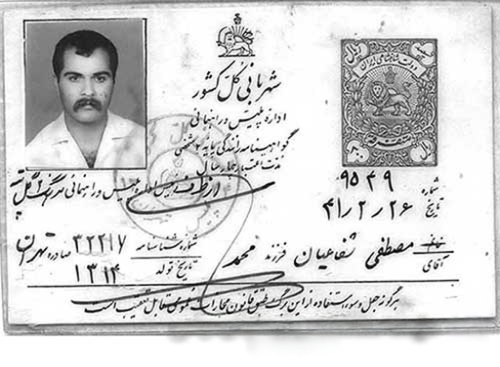 شهربانی کل کشور
اداره پلیس و راهنمائی
گواهینامه رانندگی پایه
مدت اعتبار چهار سال
از طرف رئیس اداره پلیس و راهنمائی
شماره ۹۵۳۹
تاریخ ۴۱/۲/۲۶
آقای مصطفی شفاعیان فرزند محمد
شماره شناسنامه ۳۲۲۱۷ صادره تهران
تاریخ تولد ۱۳۱۴
هرگونه جعل و سوء استفاده از این برگ طبق قانون مجازات عمومی قابل تعقیب است
دولت شاهنشاهی ایران
ریال